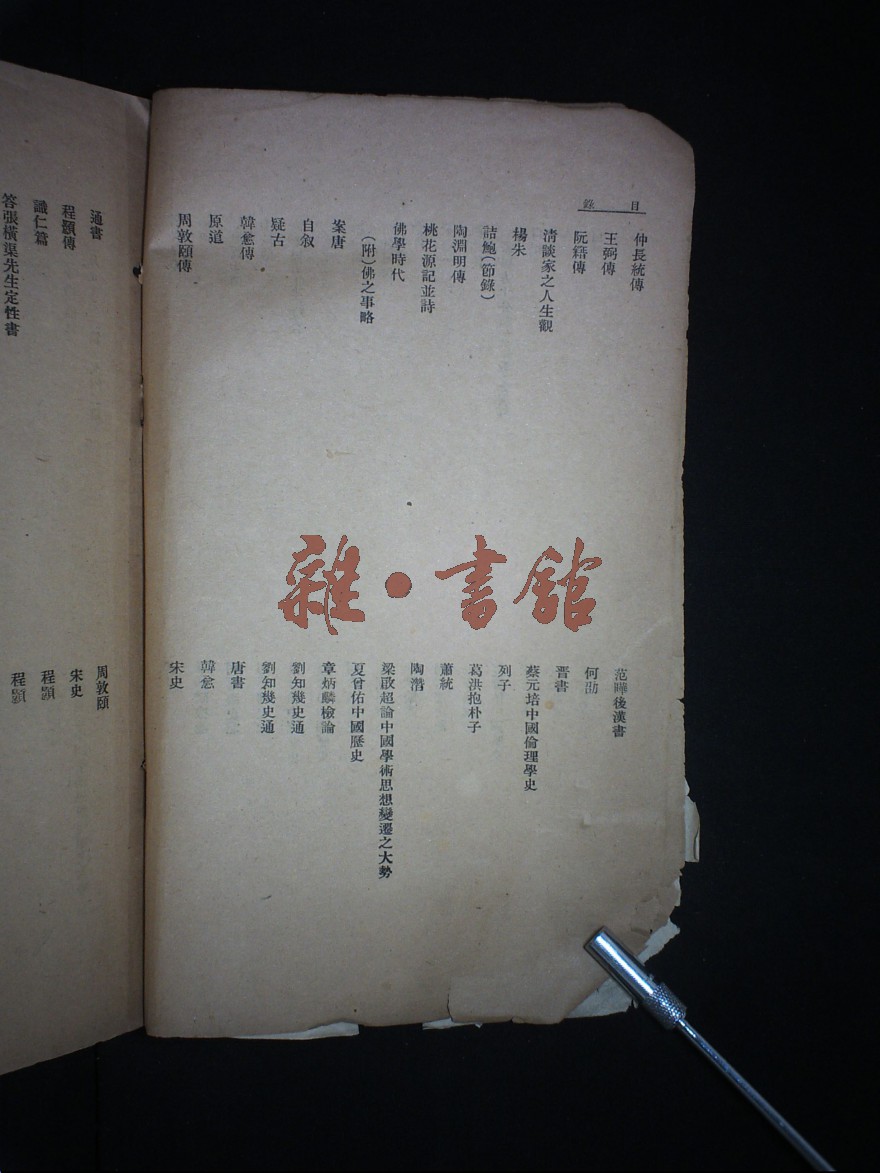 目錄
仲長統傳 范曄後漢書
王弼傳 何劭
阮籍傳 晋書
清談家之人生觀 蔡元培中國倫理學史
楊朱 列子
詰鮑(節錄) 葛洪抱朴子
陶淵明傳 蕭統
桃花源記並詩 陶潛
佛學時代 梁啟超論中國學術思想變遷之大勢
(附)佛之事略 夏曾佑中國歷史
案唐 章炳麟檢論
自叙 劉知幾史通
疑古 劉知幾史通
韓愈傳 唐書
原道 韓愈
周敦頤傳 宋史
通書 周敦頤
程顥傳 宋史
識仁篇 程顥
答張橫渠先生定性書 程顥
雜•書館